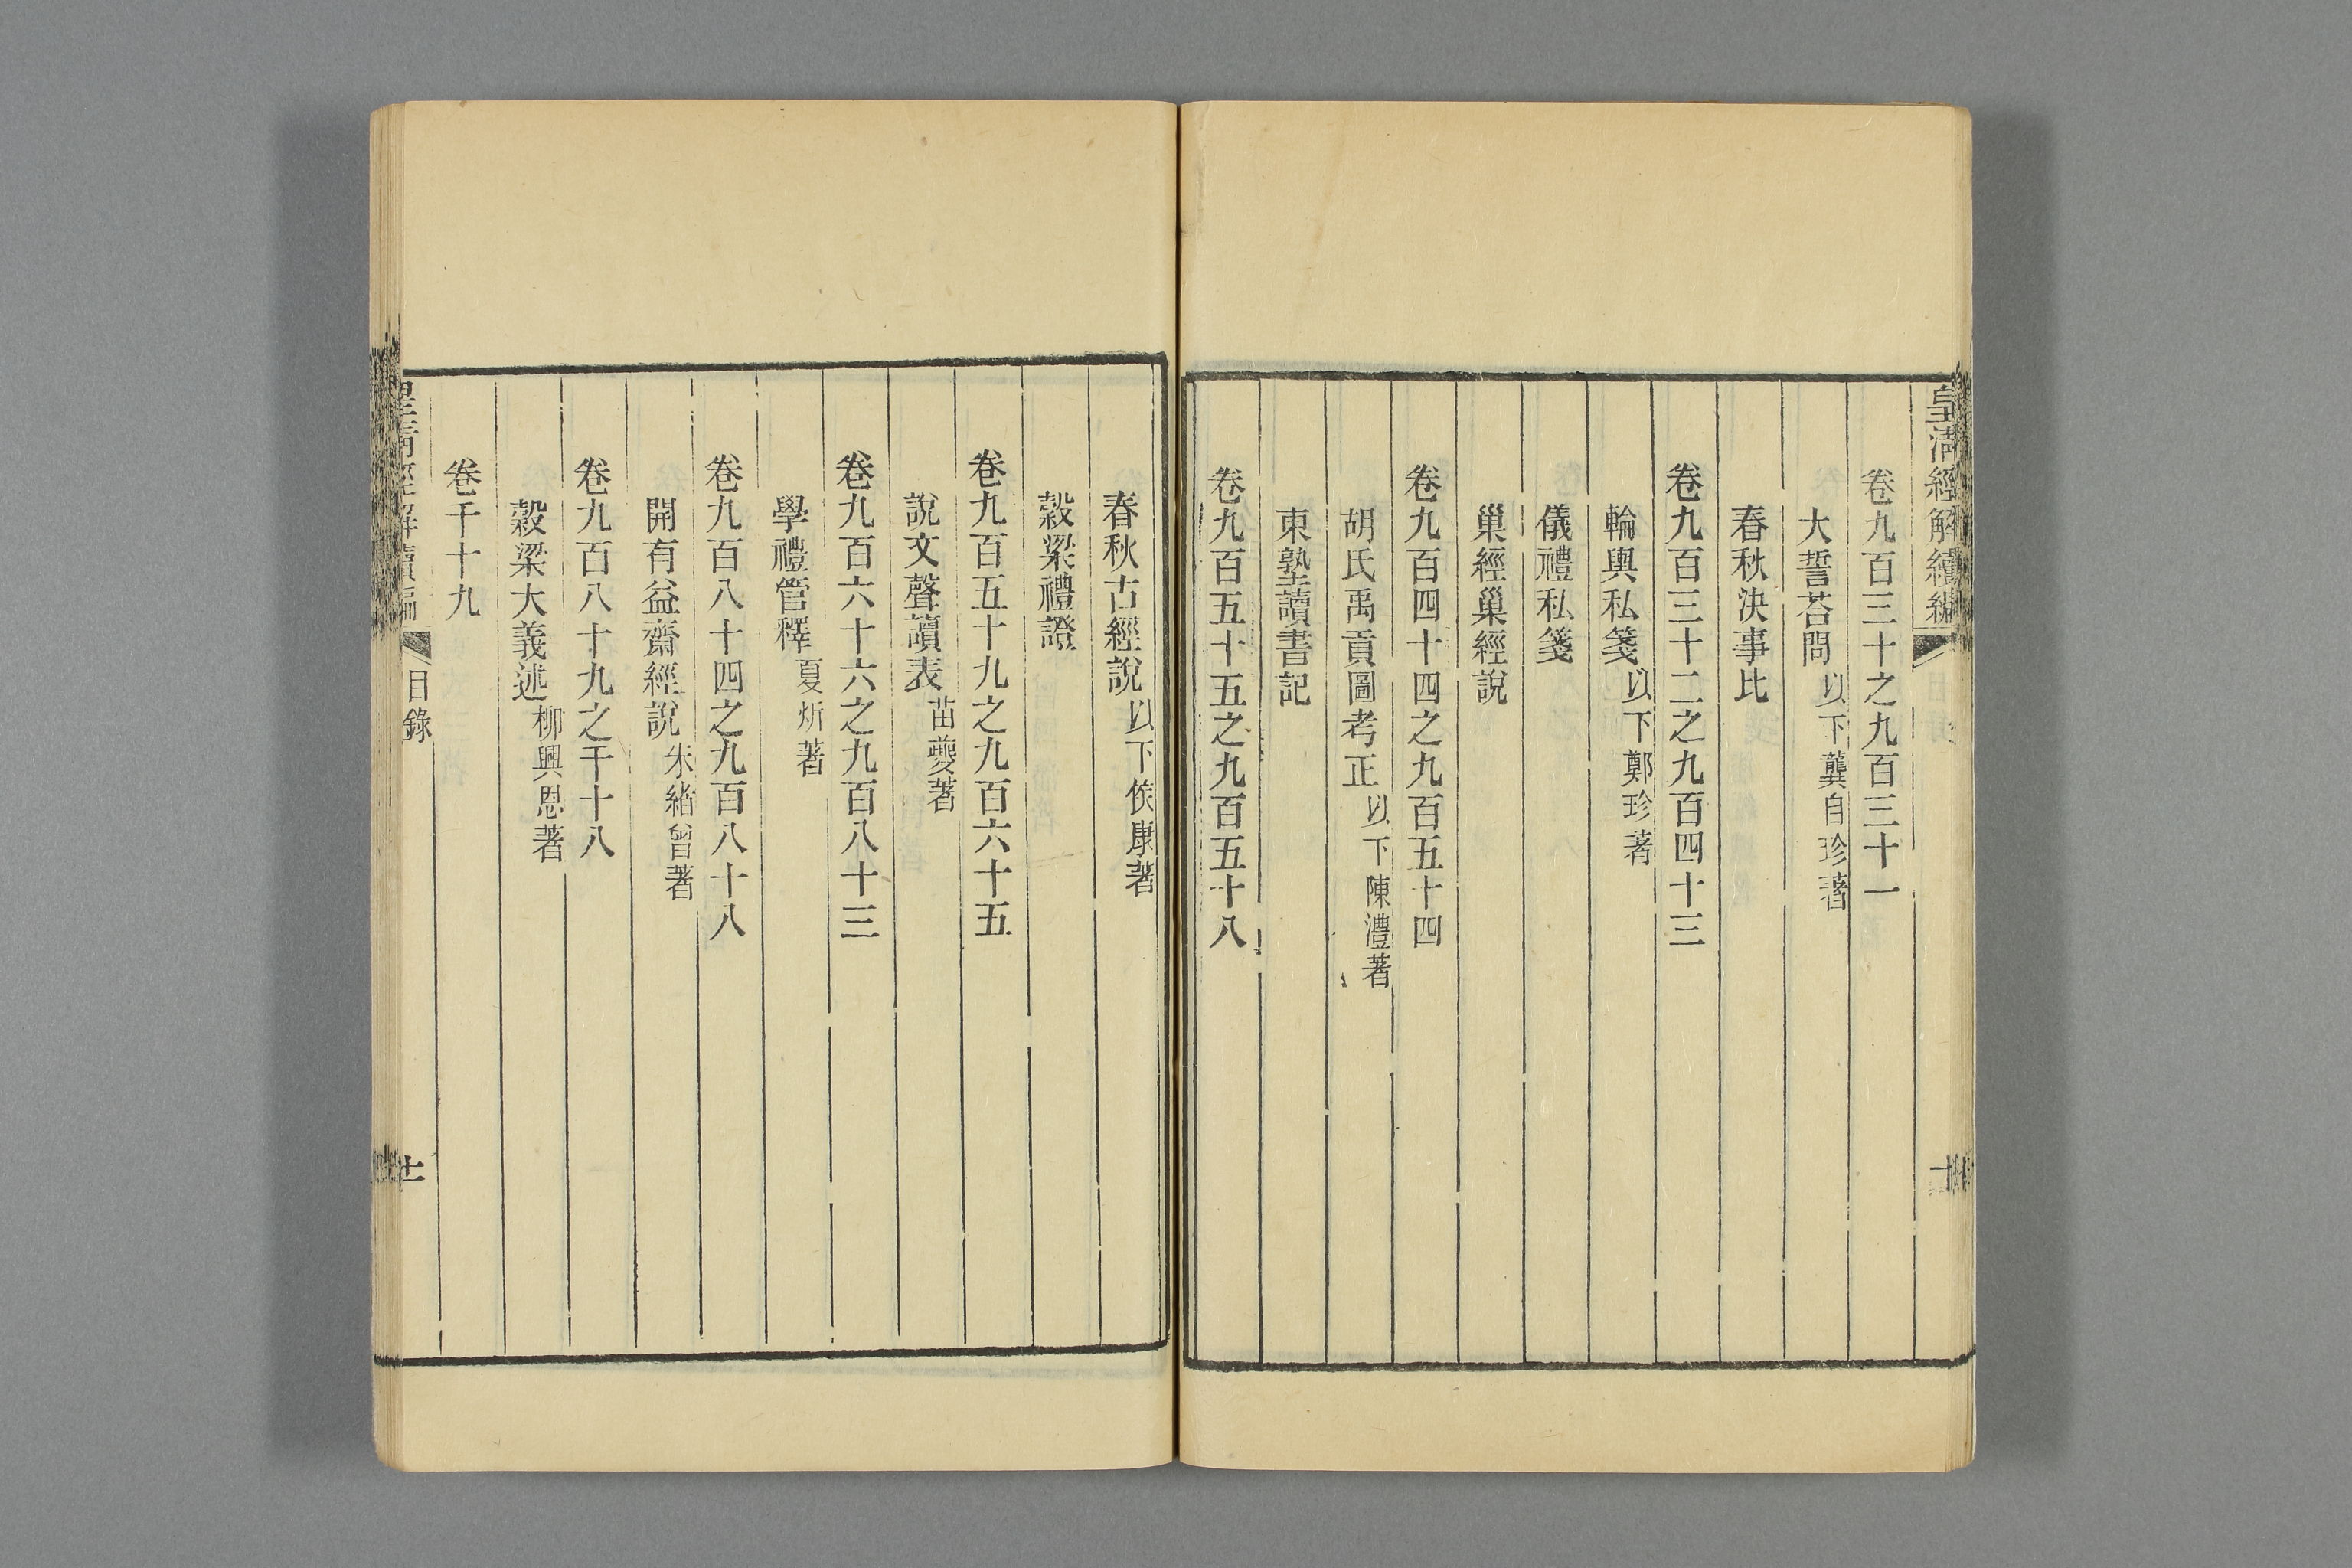 皇清經解續編
十
卷九百三十之九百三十一
大誓荅問以下龔自珍著
春秋決事比
卷九百三十二之九百四十三
輪輿私箋以下鄭珍著
儀禮私箋
巢經巢經說
卷九百四十四之九百五十四
胡氏禹貢圖考正以下陳澧著
東塾讀書記
卷九百五十五之九百五十八
春秋古經說以下侯康著
穀梁禮證
卷九百五十九之九百六十五
說文聲讀表苗夔著
卷九百六十六之九百八十三
學禮管釋夏炘著
卷九百八十四之九百八十八
開有益齋經說朱緒曾著
卷九百八十九之千十八
穀梁大義述柳興恩著
卷千十九
皇清經解續編
目錄
十一